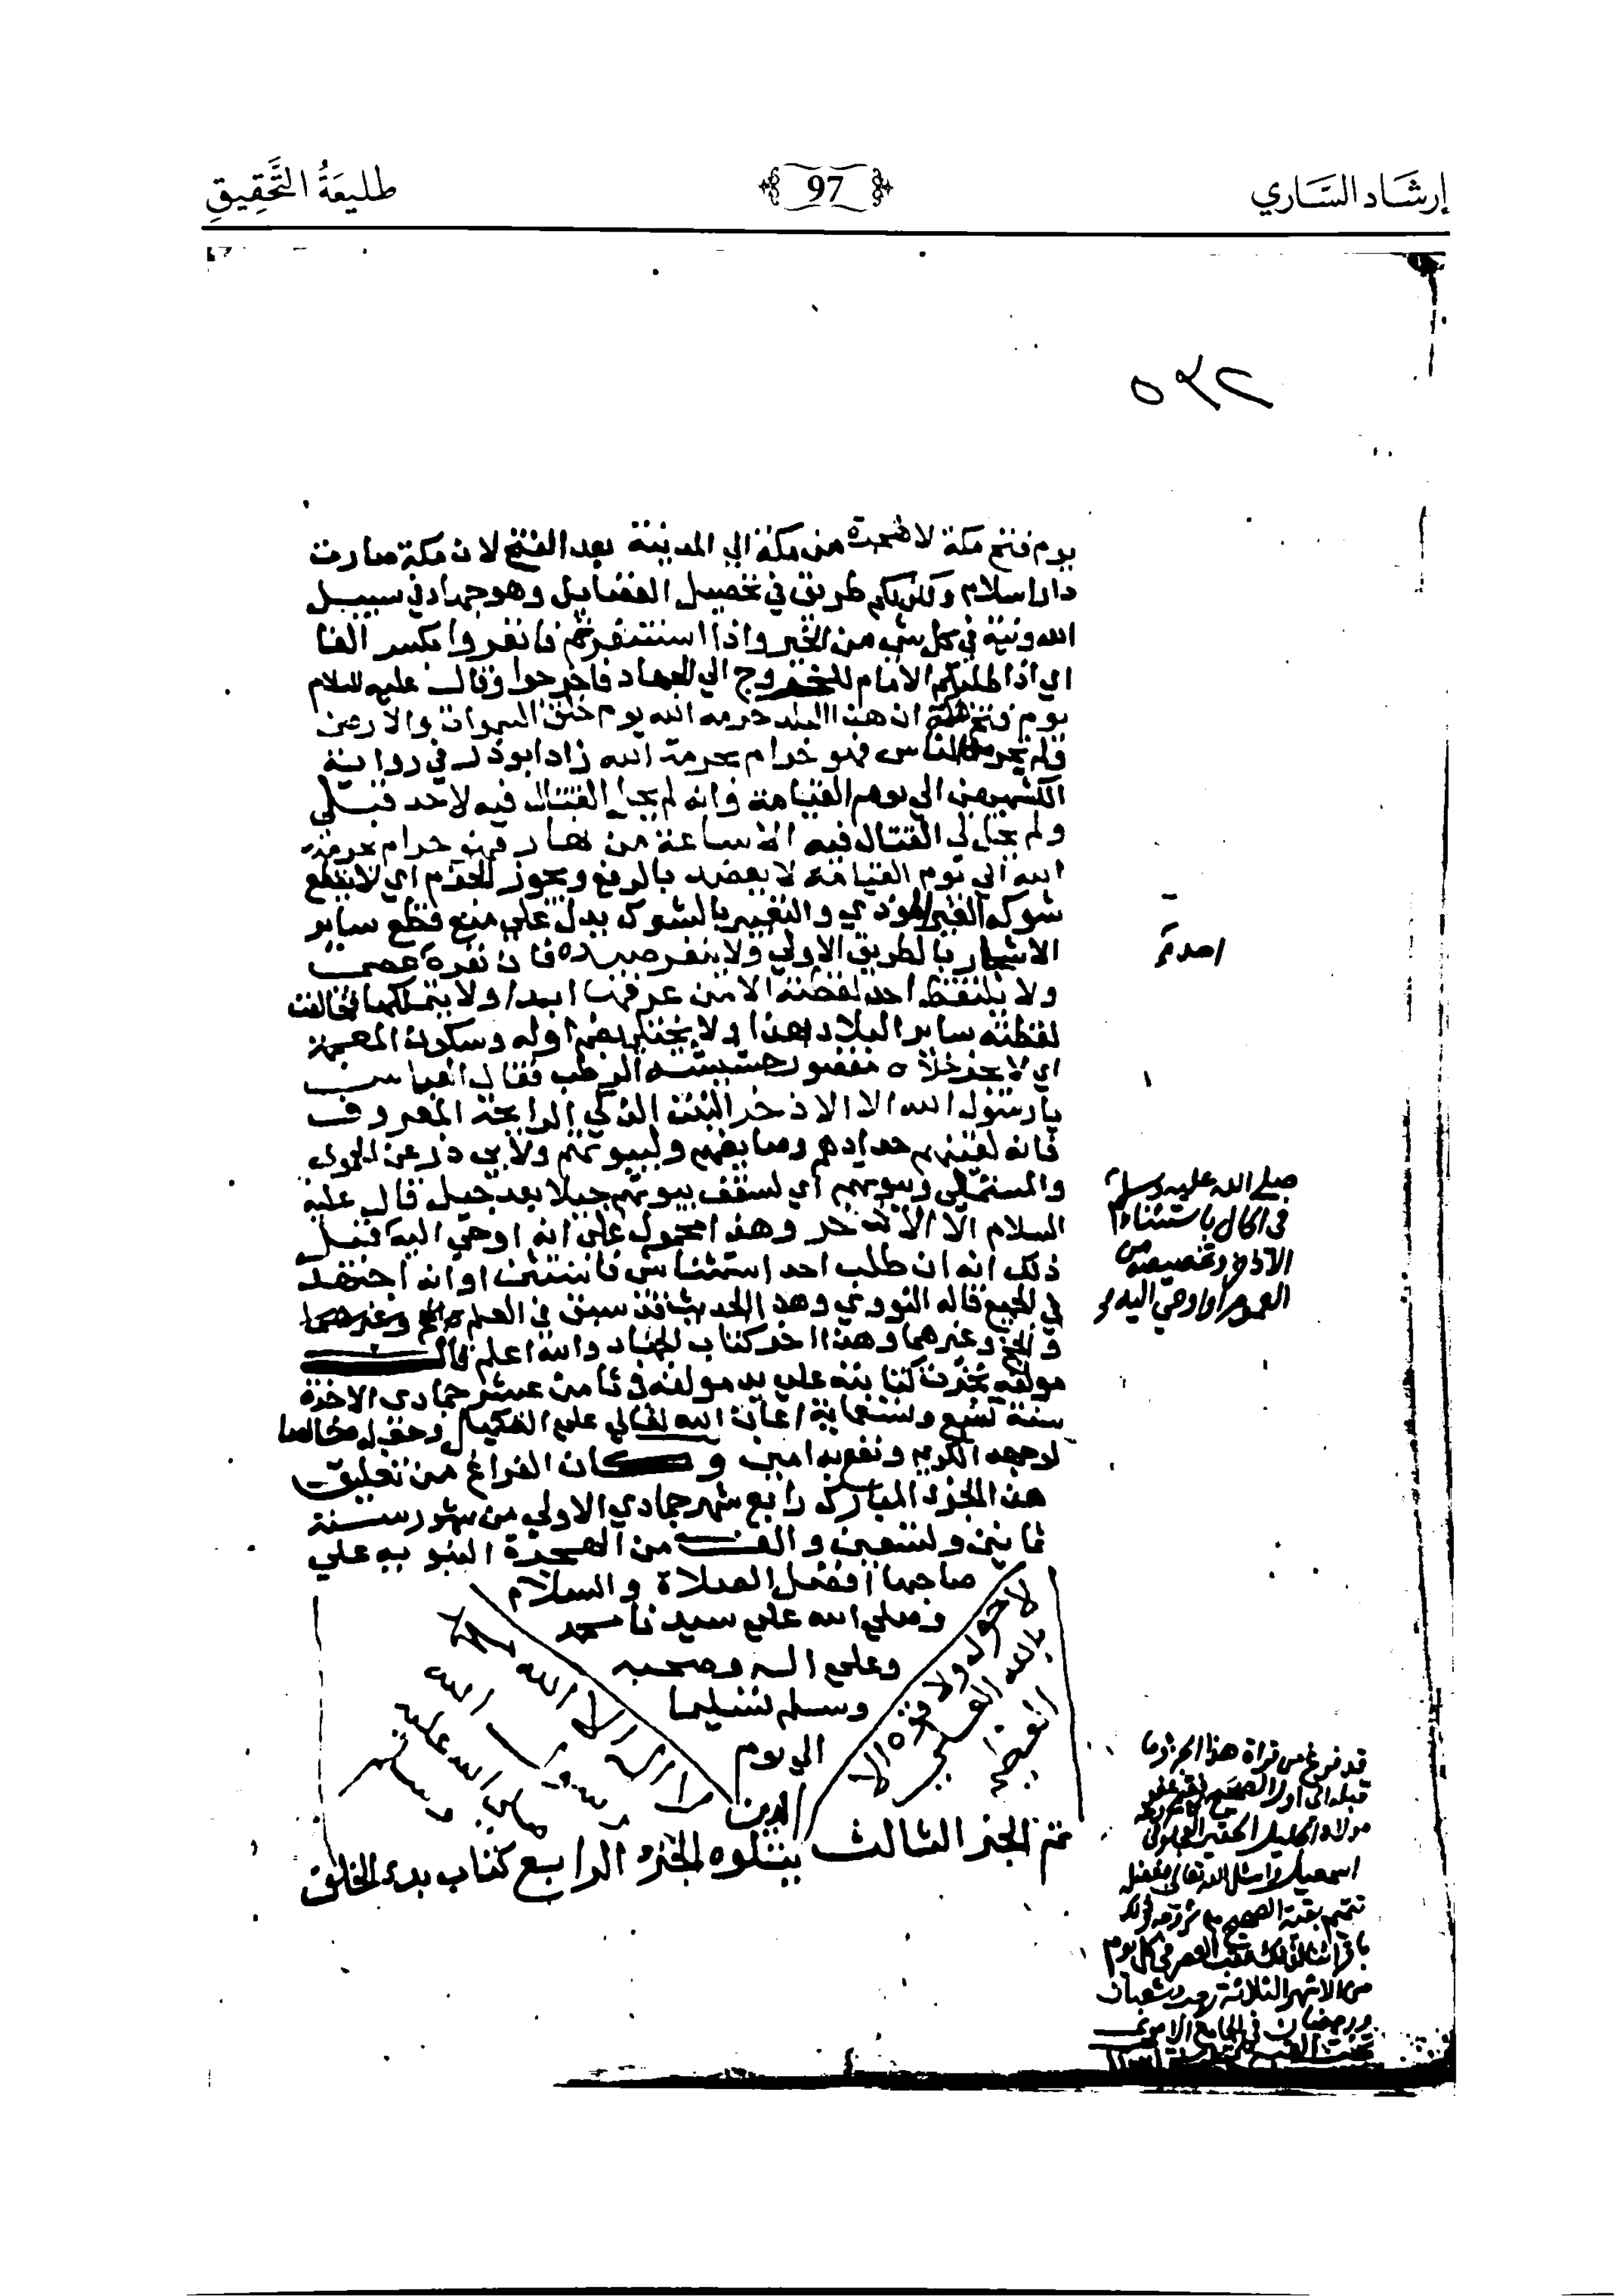 إرشاد الساري
97
طليعة التحقيق
٥٣٢
يوم فتح مكة لا هجرة من مكة الي المدينة بعد الفتح لان مكة صارت
دار اسلام ولكن لكم طريق في تحصيل الفضايل وهو جهاد في سبيل
الله ونية في كل شي من الخير واذا استنفرتم فانفروا بكسر الفا
اي اذا طلبكم الامام للخروج الي الجهاد فاخرجوا وقال عليه السلام
يوم فتح مكة ان هذا البلد حرمه الله يوم خلق السموات والارض
ولم يحرمه الناس فهو حرام بحرمة الله زاد ابو ذر في رواية
الكشميهني الي يوم القيامة وانه لم يحل القتال فيه لاحد قبلي
ولم يحل لي القتال فيه الا ساعة من نهار فهو حرام بحرمة
الله الي يوم القيامة لا يعضد بالرفع ويجوز الجزم اي لا يقطع
شوكه الغير المؤذي والتعبير بالشوك يدل علي منع قطع ساير
الاشجار بالطريق الاولي ولا ينفر صيده فان نفره عصي
ولا يلتقط احد لقطته الا من عرفها ابدا ولا يتملكها بخالف
لقطته ساير البلاد هذا ولا يختلي بضم اوله وسكون المعجمة
اي لا يجز خلاه مقصور حشيشه الرطب فقال العباس
يا رسول الله الا الاذخر النبت الذكي الرايحة المعروف
فانه لقينهم حدادهم وصايغهم ولبيوتهم ولابي ذر عن الحموي
والمستملي وبيوتهم اي لسقف بيوتهم جيلا بعد جيل قال عليه
السلام الا الاذخر وهذا محمول علي انه اوحي اليه قبل
ذلك انه ان طلب احد استثنا شي فاستثن او انه اجتهد
في الجميع قاله النووي وهذا الحديث قد سبق في العلم
والحج وغيرهما وهذا اخر كتاب الجهاد والله اعلم قال
مولفه نجزت كتابته علي يد مولفه في ثامن عشر جمادي الاخرة
سنة تسع وتسعماية اعان الله تعالي علي التكميل وجعله خالصا
لوجهه الكريم ونفع به امين وكان الفراغ من تعليق
هذا الجزء المبارك رابع شهر جمادي الاولي من شهور سنة
ثمانين وتسعين والف من الهجرة النبويه علي
صاحبها افضل الصلاة والسلام
وصلي الله علي سيدنا محمد
وعلي اله وصحبه
وسلم تسليما
الي يوم
الدين
لا حول ولا قوة الا
بالله العلي
العظيم
لا اله الا الله محمد
رسول الله
صلي الله عليه
وسلم
تم الجزء الثالث يتلوه الجزء الرابع كتاب بدء الخلق
صلي الله عليه وسلم
في الحال باستثناء
الاذخر وتخصيصه من
العموم او اوحي اليه
قد فرغ من قراة هذا الجزء وما
قبله الي اول الصحيح
اسمعيل واسئل الله تعالي بفضله
تتميم بقية الصحيح
العصر في كل يوم
من الاشهر الثلاثة رجب وشعبان
ورمضان في الجامع الاموي